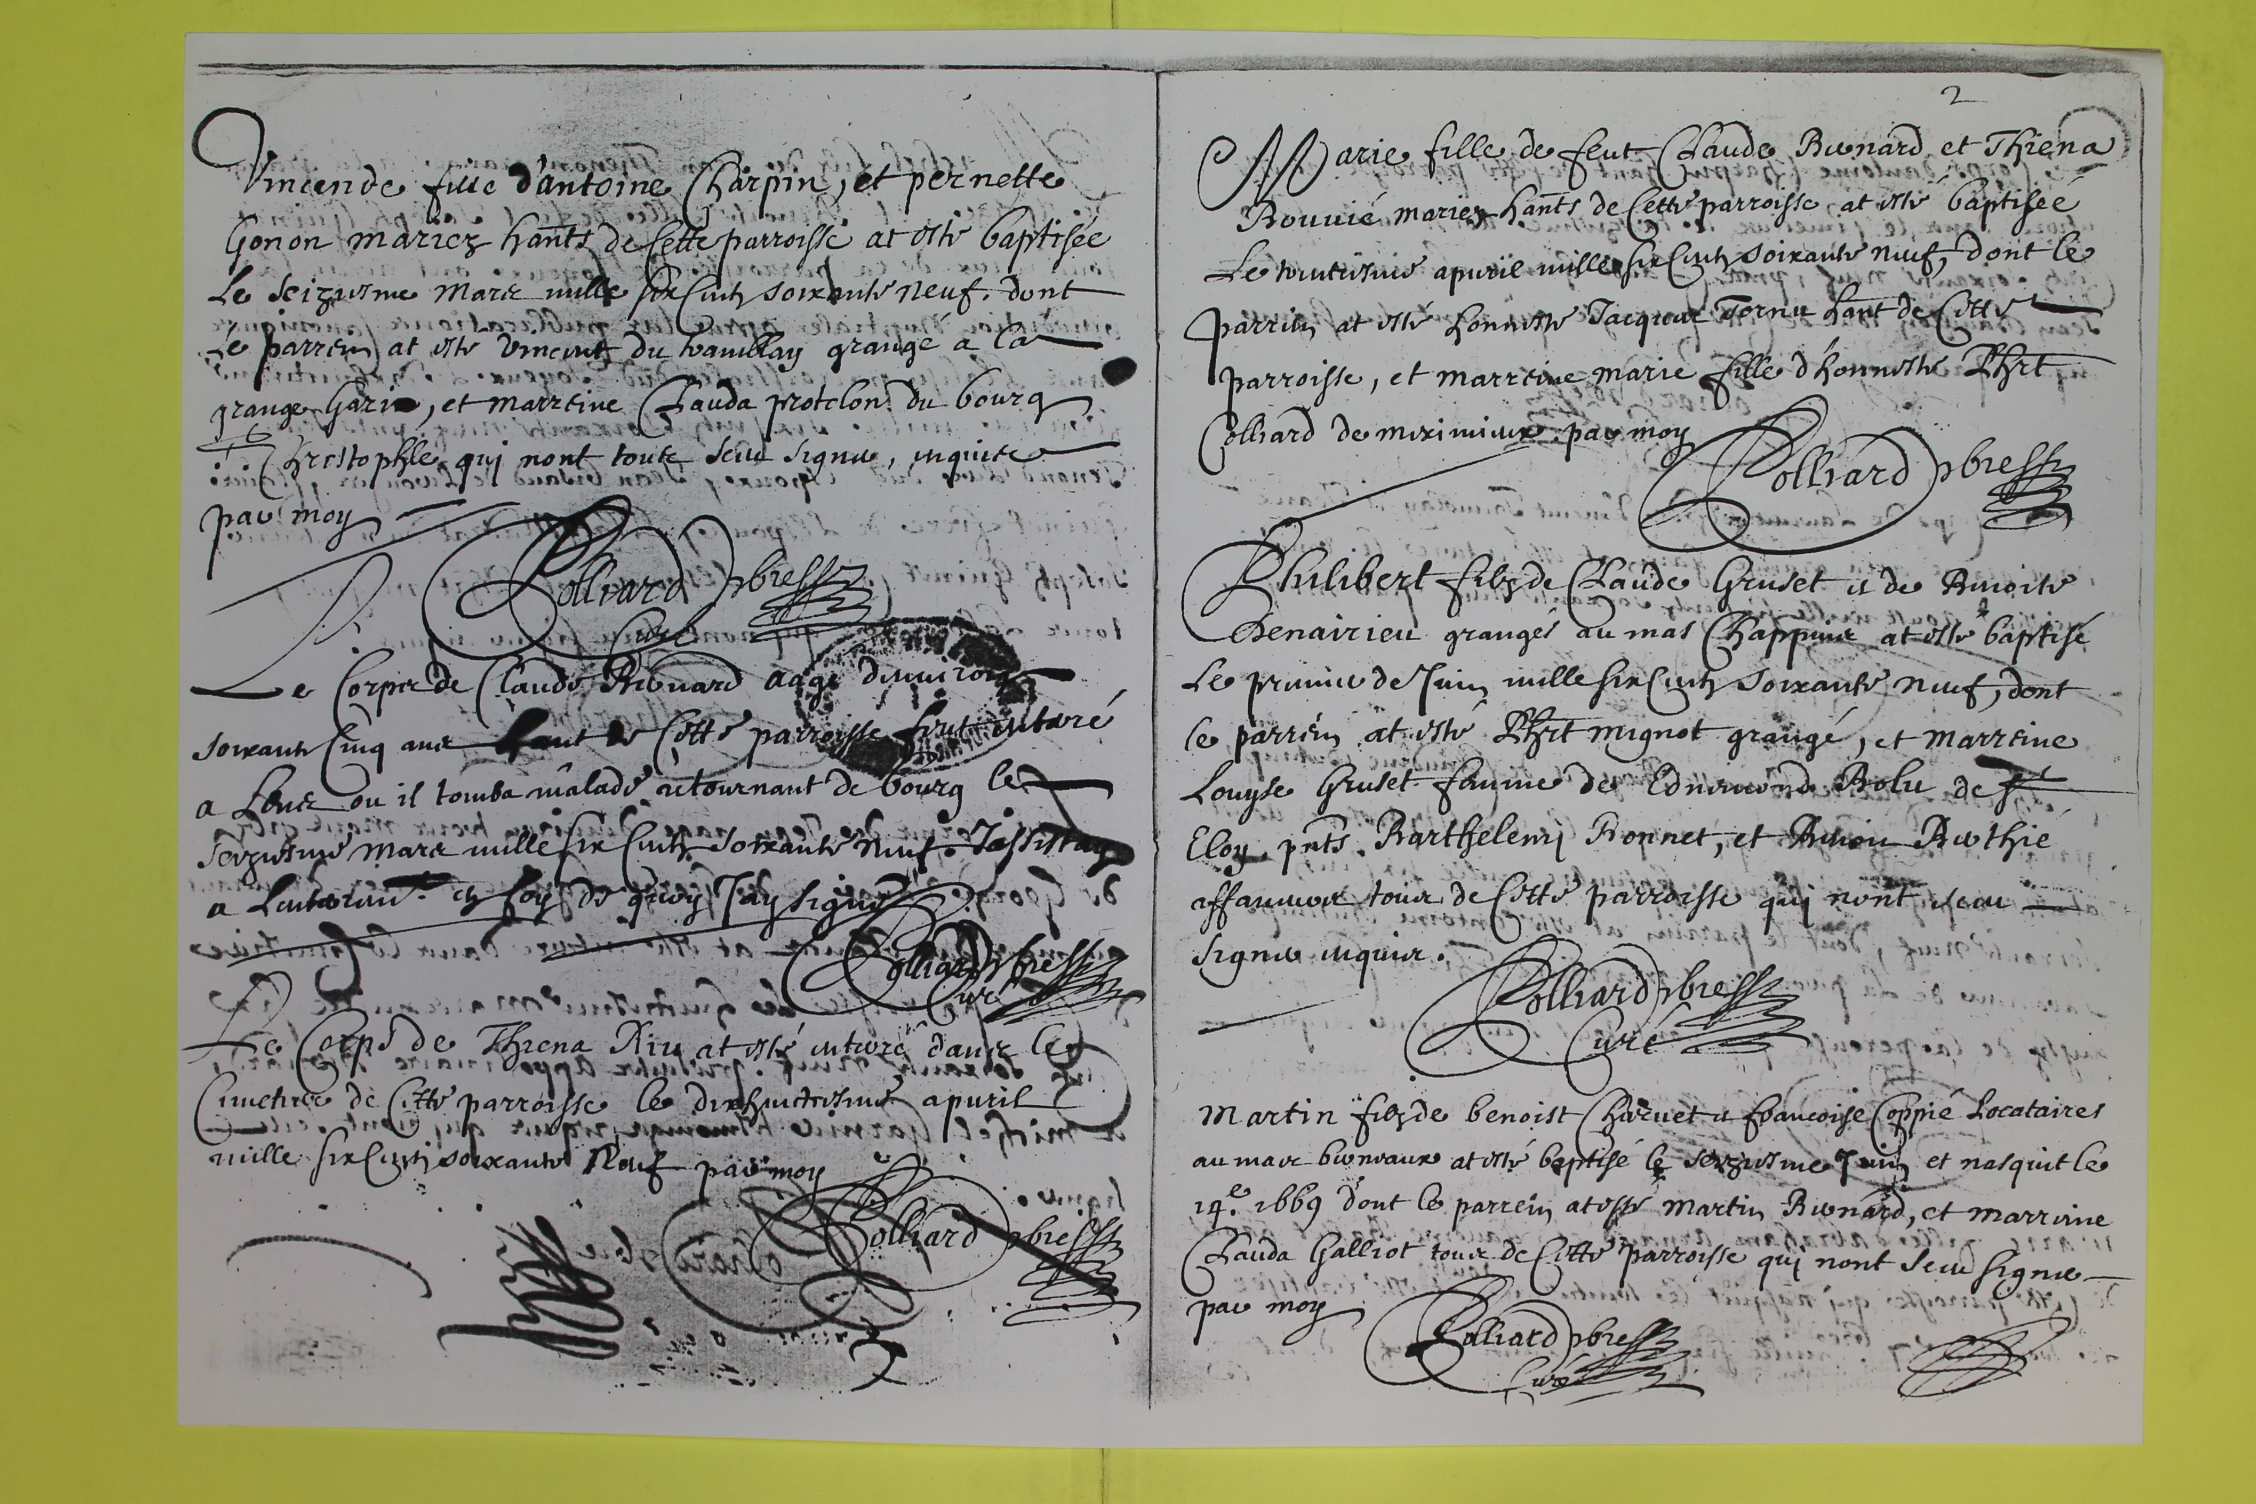 Vincende fille d'antoine Charpin, et pernette
Gonon mariez hants de Cette parroisse at esté baptisée
Le seiziesme Mars mille six Cents soixante neuf. dont
Le parrein at esté Vincent du tramblay grangé a la
grange Garin, et marreine Clauda protelon du bourg
St Christophle qui nont toute sceu signer, enquise
par moy
Colliard pbre
Curé
Le Corps de Claude Bernard aagé denviron
soixante Cinq ans hant de Cette parroisse fut enterré
a ou il tomba malade retournant de bourg le
seiziesme mars mille six Cents soixante neuf. Jassistay
a Lenterremt. en foy de quoy Jay signé
Colliard pbre
Curé
Le Corps de Thiena at esté enterré dans le
Cimetiere de Cette parroisse le dixhuictiesme apuril
mille six Cents soixante Neuf par moy
Colliard pbre
2
Marie fille de feut Claude Bernard et Thiena
Bouuié mariez hants de Cette parroisse at esté baptisée
Le trentiesme apuril mille six Cents soixante neuf, dont le
parrein at esté honneste Jacques Fornier hant de Cette
parroisse, et marreine marie fille d'honneste Phrt
Colliard de meximieux par moy
Colliard pbre
Philibert filz de Claude Gruset et de Benoite
Chenairieu grangés au mas Chappuis at esté baptisé
Le premier de Juin mille six Cents soixante neuf, dont
le parrein at esté Phrt mignot grangé, et marreine
Louyse Gruset femme de Edmond Bolu de St
Eloy. pnts. Barthelemi Bonnet, et Benoit Berthié
affaneurs tous de Cette parroisse qui nont sceu
signer enquis.
Colliard pbre
Curé
Martin filz de benoist Charuet et francoise Coppié Locataires
au mas berneaux at esté baptisé le seiziesme Juin et nasquit le
14.e 1669 dont le parrein at esté Martin Bernard, et marreine
Clauda Galliot tous de Cette parroisse qui nont sceu signer
par moy
Colliard pbre
Curé